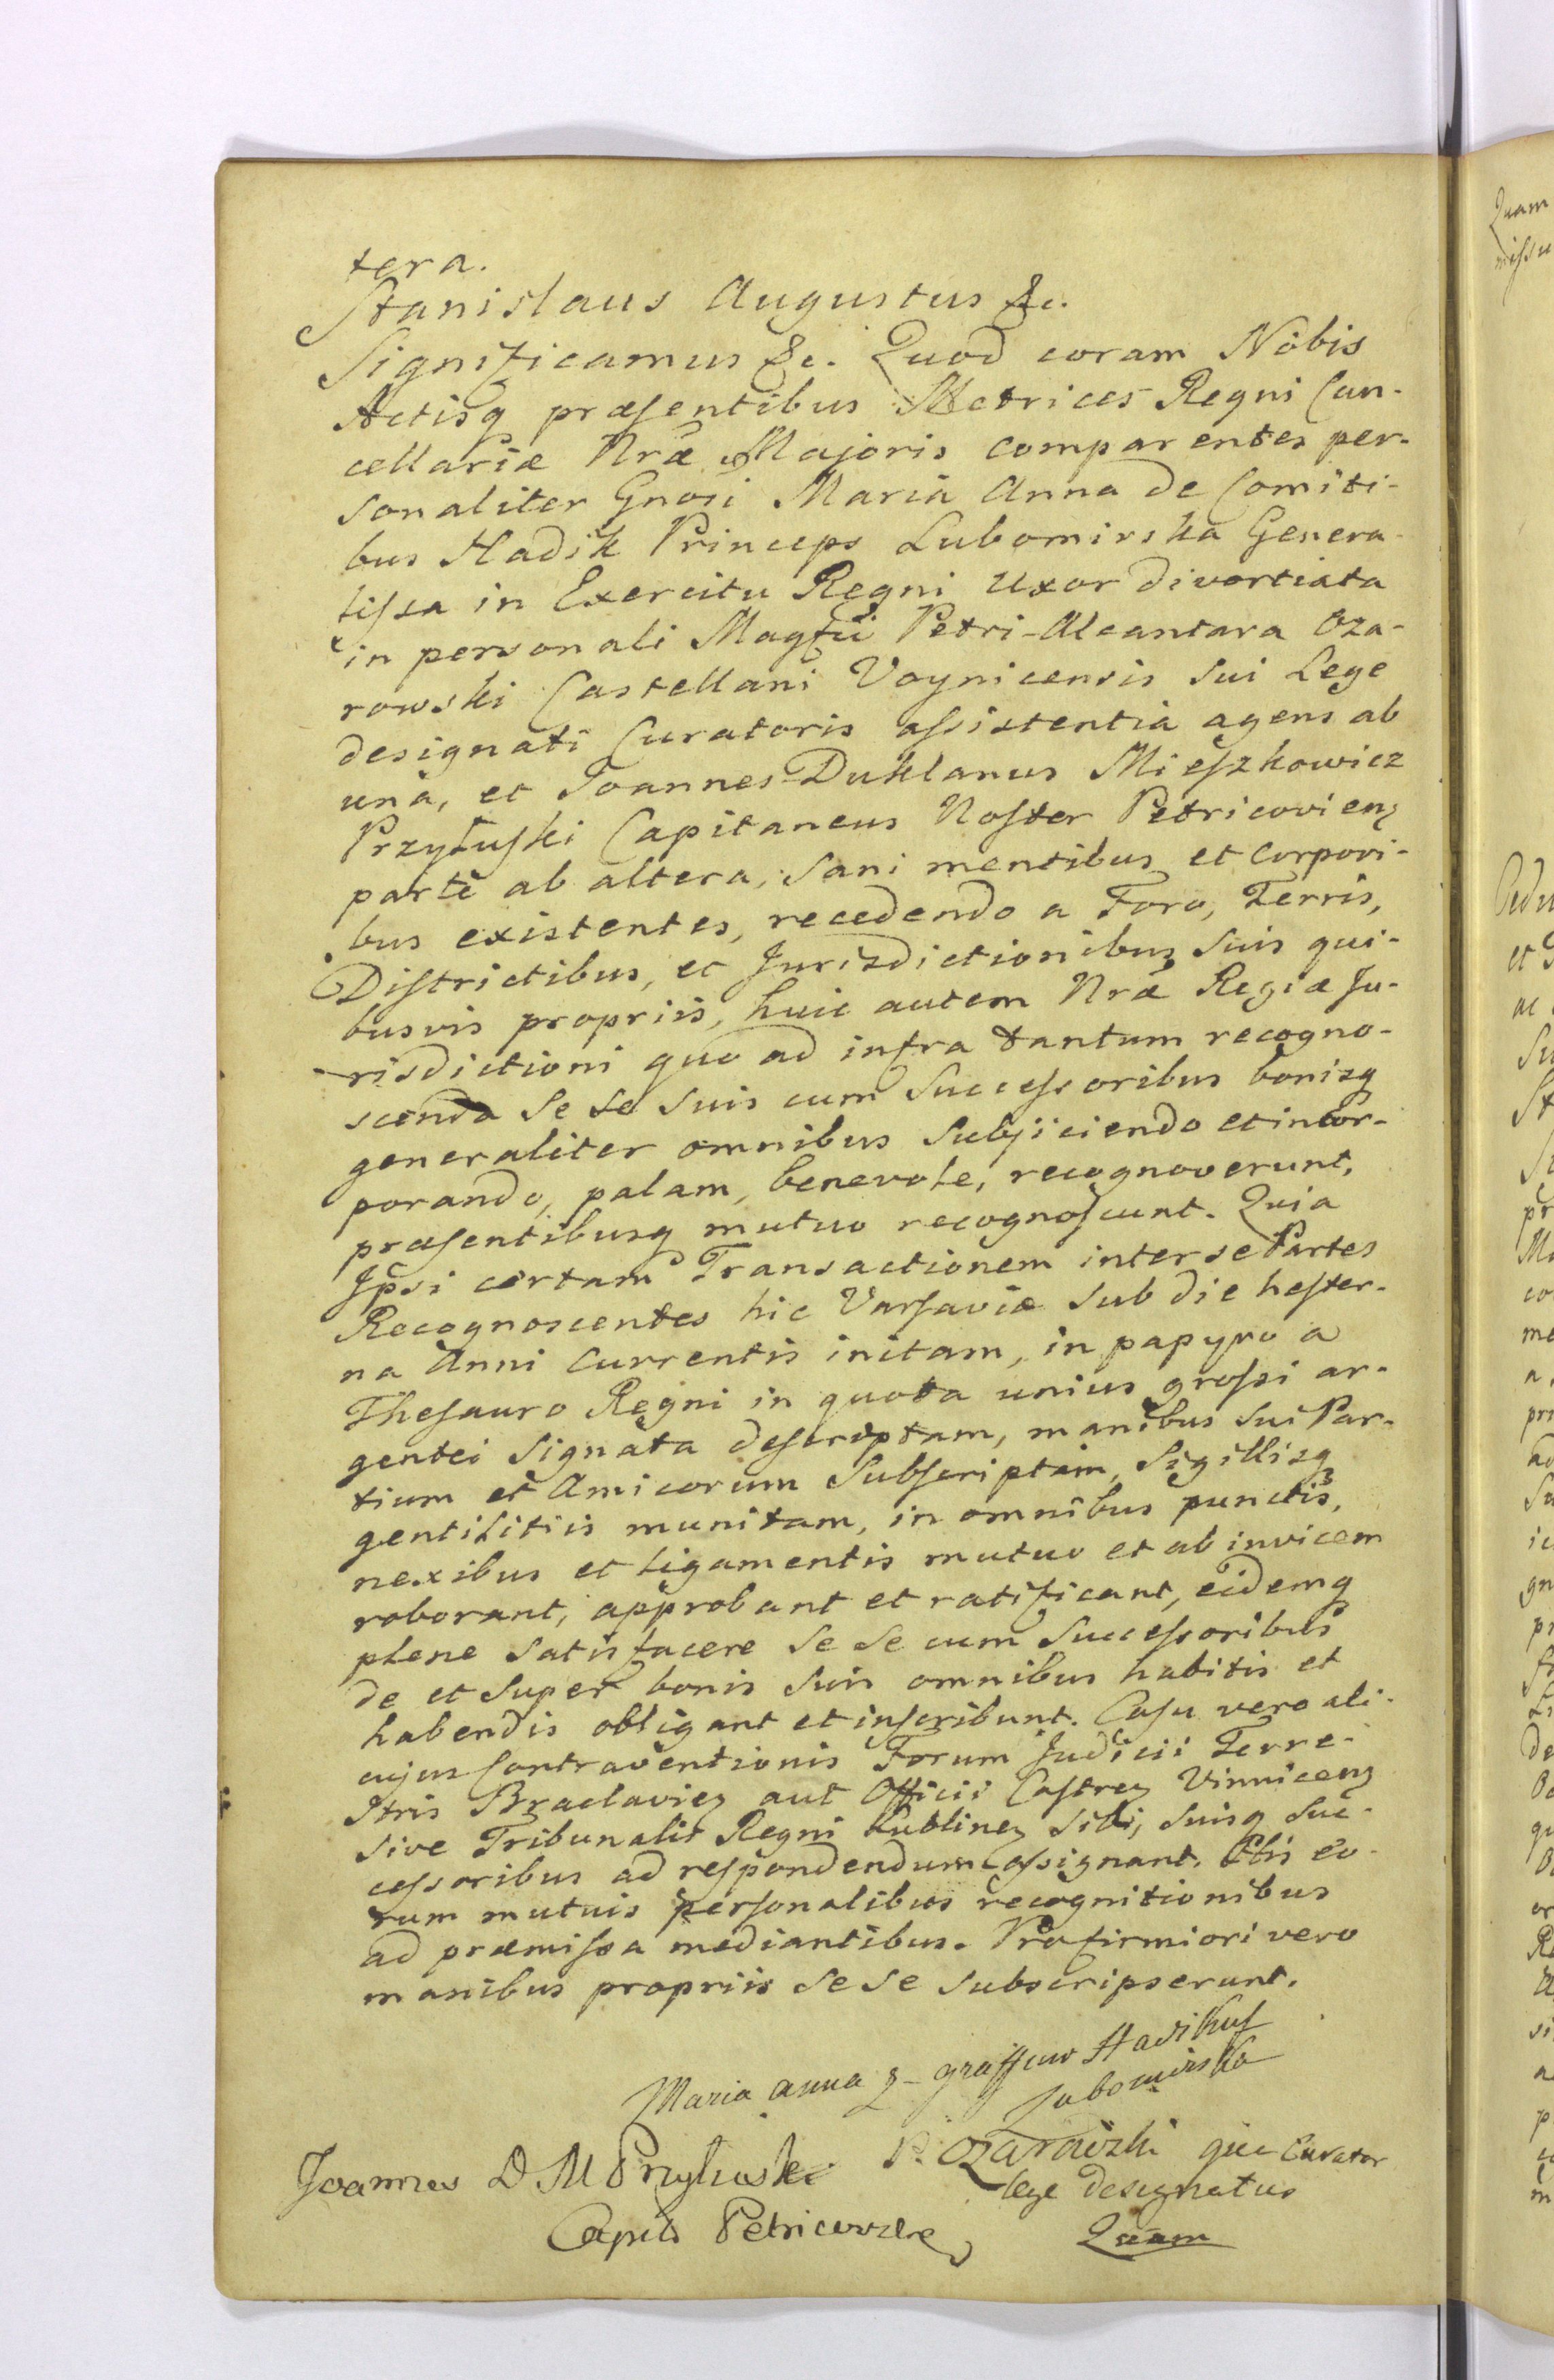 tera.
Stanislaus Augustus &c.
Significamus &c. Quod coram Nobis
Actisq præsentibus Metrices Regni Can-
cellariæ Nræ Majoris comparentes per-
sonaliter Gnosi Maria Anna de Comiti-
bus Hadik Princeps Lubomirska Genera-
lissa in Exercitu Regni Uxor divortiata
in personali Magfci Petri-Alcantara Oza-
rowski Castellani Voynicensis sui Lege
designati Curatoris assistentia agens ab
una, et Joannes Duklanus Mieszkowicz
Przyłuski Capitaneus Noster Petricovienȝ
parte ab altera, sani mentibus et corpori-
bus existentes, recedendo a Foro, Terris,
Districtibus, et Jurisdictionibus suis qui-
busvis propriis, huic autem Nræ Regiæ Ju-
risdictioni quo ad infra tantum recogno-
scenda se se suis cum Successoribus bonisq
generaliter omnibus subjiciendo et incor-
porando, palam, benevole, recognoverunt,
præsentibusq mutuo recognoscunt. Quia
Ipsi certam Transactionem inter se Partes
Recognoscentes hic Varsaviæ sub die hester-
na Anni Currentis initam, in papyro a
Thesauro Regni in quota unius grossi ar-
gentei signata descriptam, manibus sui Par-
tium et Amicorum subscriptam, sigillisq
gentilitiis munitam, in omnibus punctis,
nexibus et ligamentis mutuo et ab invicem
roborant, approbant et ratificant, eidemq
plene satisfacere se se cum successoribus
de et super bonis suis omnibus habitis et
habendis obligant et inscribunt. Casu vero ali-
cujus Contraventionis Forum Judicii Terre-
stris Braclavieȝ aut Officii Castreȝ Vinniceȝ
sive Tribunalis Regni Lublineȝ sibi, suisq suc-
cessoribus ad respondendum assignant. Htis eo-
rum mutuis personalibus recognitionibus
ad præmissa mediantibus. Pro firmiori vero
manibus propriis se se subscripserunt.
Maria anna z graffuw Hadikuf
Lubomirska
P. Ozarowski qua Curator
lege designatus
Joannes D M Przyluski
Capus Petricovieȝ
Quam